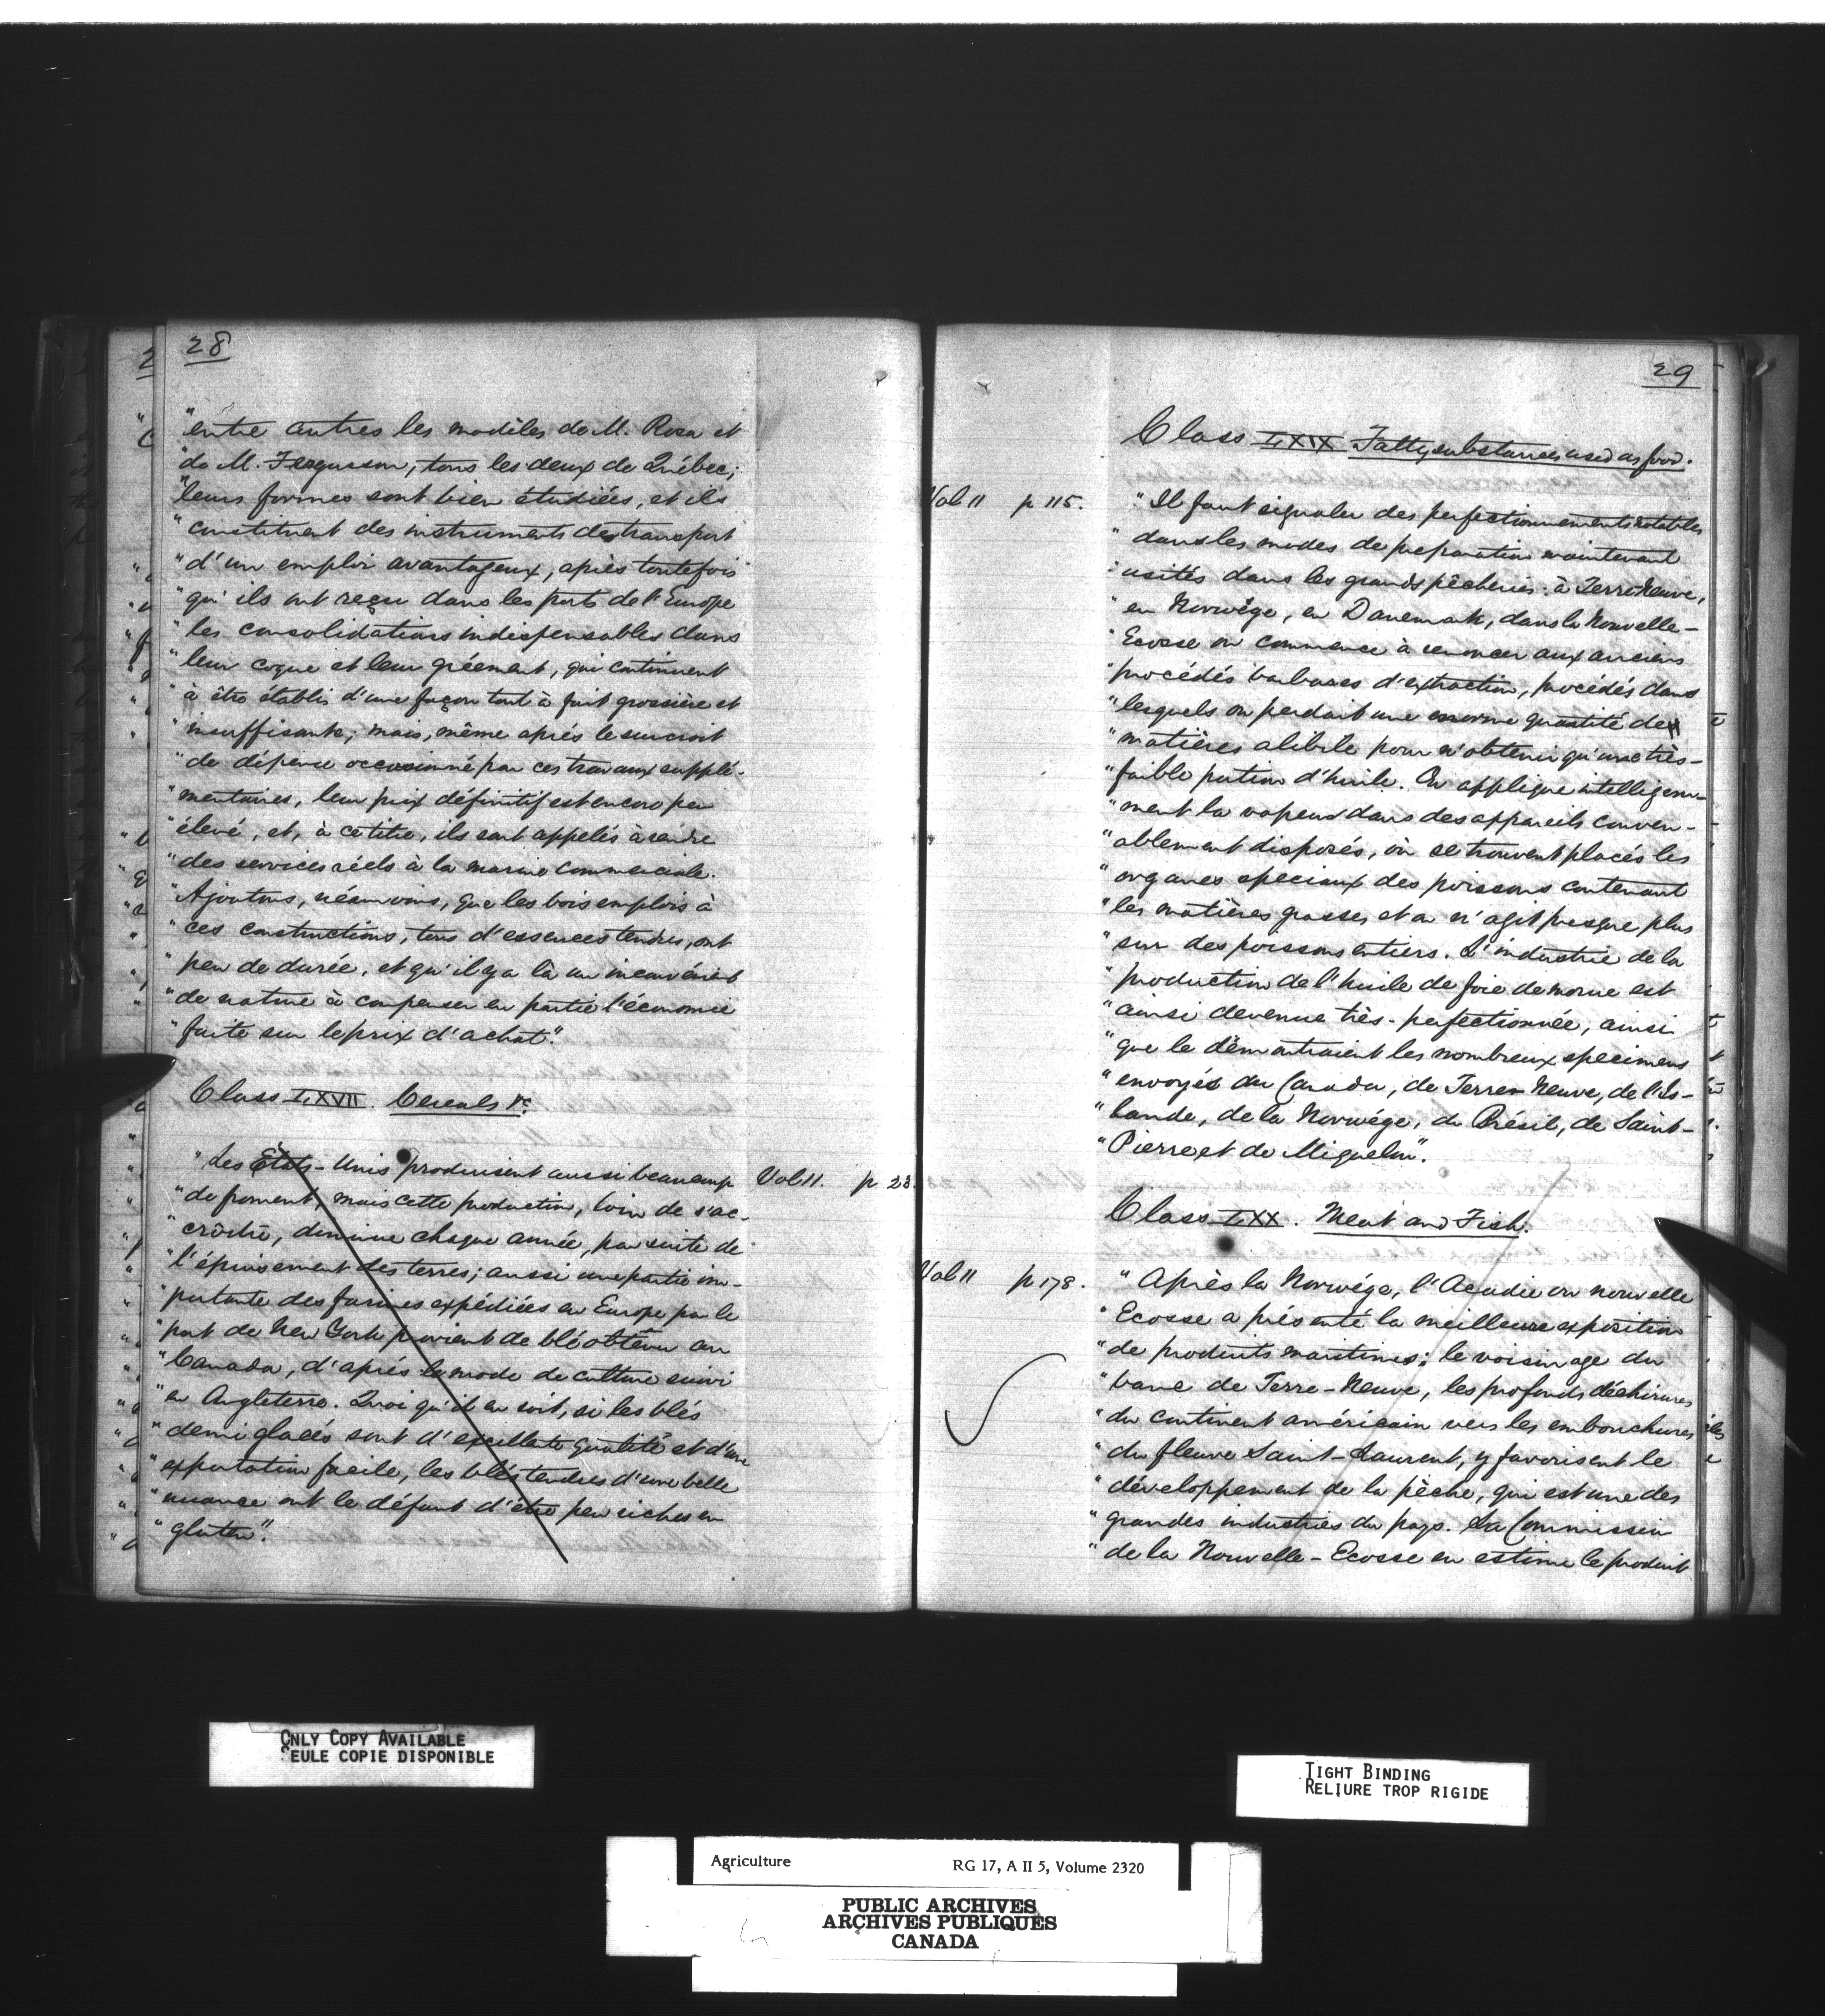 28
"entre autres les modèles de M. Rosa et
"de M. Fergusson, tous les deux de Québec;
"leurs formes sont bien étudiées, et ils
"constituent des instruments de transport
"d'un emploi avantageux, après toutefois
"qu'ils ont reçu dans les ports de l'Europe
"les consolidations indispensables dans
"leur coque et leur gréement, qui continuent
"à être établis d'une façon tout à fait grossière et
"insuffisante; mais, même après le surcroit
"de dépense occasionné par ces travaux supplé-
"mentaires, leur prix définitif est encore peu
"élevé, et, à ce titre, ils sont appelés à rendre
"des services réels à la marine commerciale.
"Ajoutons, néanmoins, que les bois emplois à
"ces constructions, tous d'essences tendres, ont
"peu de durée, et qu'il y a là un inconvénient
"de nature à compenser en partie l'économie
"faite sur le prix d'achat."
Class LXVII. Cereals &c.
"Les États-Unis produisent aussi beaucoup Vol 11. p 23.
"de froment, mais cette production, loin de s'ac-
"croître, diminue chaque année, par suite de
"l'épuisement des terres; aussi une partie im-
"portante des farines expédiées en Europe par le
"port de New York provient de blé obtenu au
"Canada, d'après le mode de culture suivi
"en Angleterre. Quoi qu'il en soit, si les blés
"demi glacés sont d'excellente qualité et d'une
"exportation facile, les blés tendres d'une belle
"nuance ont le défaut d'être peu riches en
"gluten".
29
Class LXIX Fatty substances used as food.
Vol 11 p 115. "Il faut signaler des perfectionnements notables
"dans les modes de preparation maintenant
"usités dans les grands pêcheries: à Terre-Neuve,
"en Norwége, en Danemark, dans la Nouvelle-
"Ecosse on commence à renoncer aux anciens
"procédés barbares d'extraction, procédés dans
"lesquels on perdait une enorme quantité de
"matières alibile pour n'obtenir qu'une très-
"faible portion d'huile. On applique intelligem-
"ment la vapeur dans des appareils conven-
"ablement disposés, où se trouvent placés les
"organes speciaux des poissons contenant
"les matières grasses et on n'agit presque plus
"sur des poissons entiers. L'industrie de la
"production de l'huile de foie de morue est
"ainsi devenue très-perfectionnée, ainsi
"que le démontraient les nombreux specimens
"envoyés du Canada, de Terre-Neuve, de l'Is-
"lande, de la Norwége, du Brésil, de Saint-
"Pierre et de Miquelon".
Class LXX. Meat and Fish.
Vol 11 p 178. "Après la Norwége, l'Acadie ou nouvelle
"Ecosse a présenté la meilleure exposition
"de produits maritimes; le voisinage du
"banc de Terre-Neuve, les profonds déchirures
"du continent américain vers les embouchures
"du fleuve Saint-Laurent, y favorisent le
"développement de la pèche, qui est une des
"grandes industries du pays. La Commission
"de la Nouvelle-Ecosse en estime le produit
ONLY COPY AVAILABLE
SEULE COPIE DISPONIBLE
TIGHT BINDING
RELIURE TROP RIGIDE
Agriculture RG 17, A II 5, Volume 2320
PUBLIC ARCHIVES
ARCHIVES PUBLIQUES
CANADA